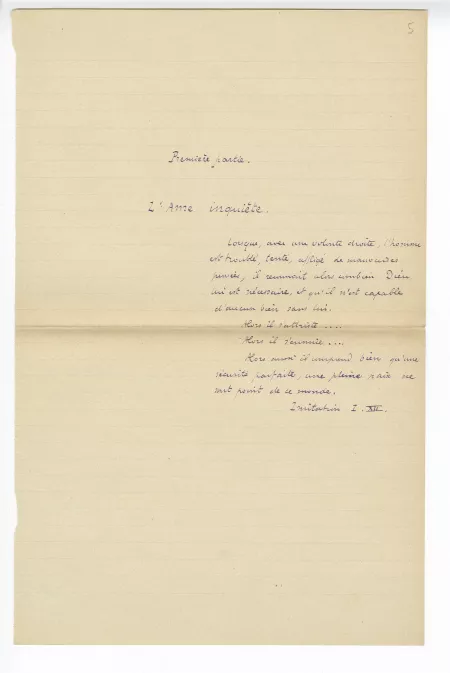 5
Première partie.
L'Ame inquiète.
Lorsque, avec une volonté droite, l'homme
est troublé, tenté, affligé de mauvaises
pensées, il reconnaît alors combien Dieu
lui est nécessaire, et qu'il n'est capable
d'aucun bien sans lui.
Alors il s'attriste....
Alors il
Alors aussi il comprend bien qu'une
sécurité parfaite, une pleine paix ne
sont point de ce monde.
Imitation I. XII.